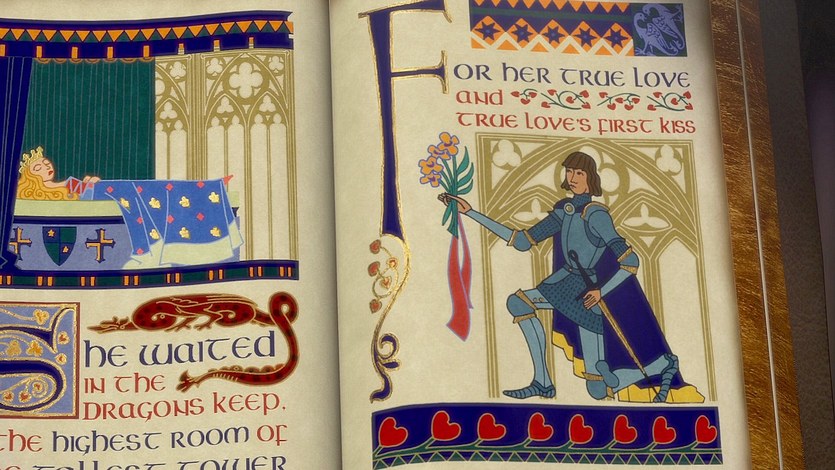 She waited
in the
dragons keep.
the highest room of
tallest tower
For her true love
and
true love's first kiss